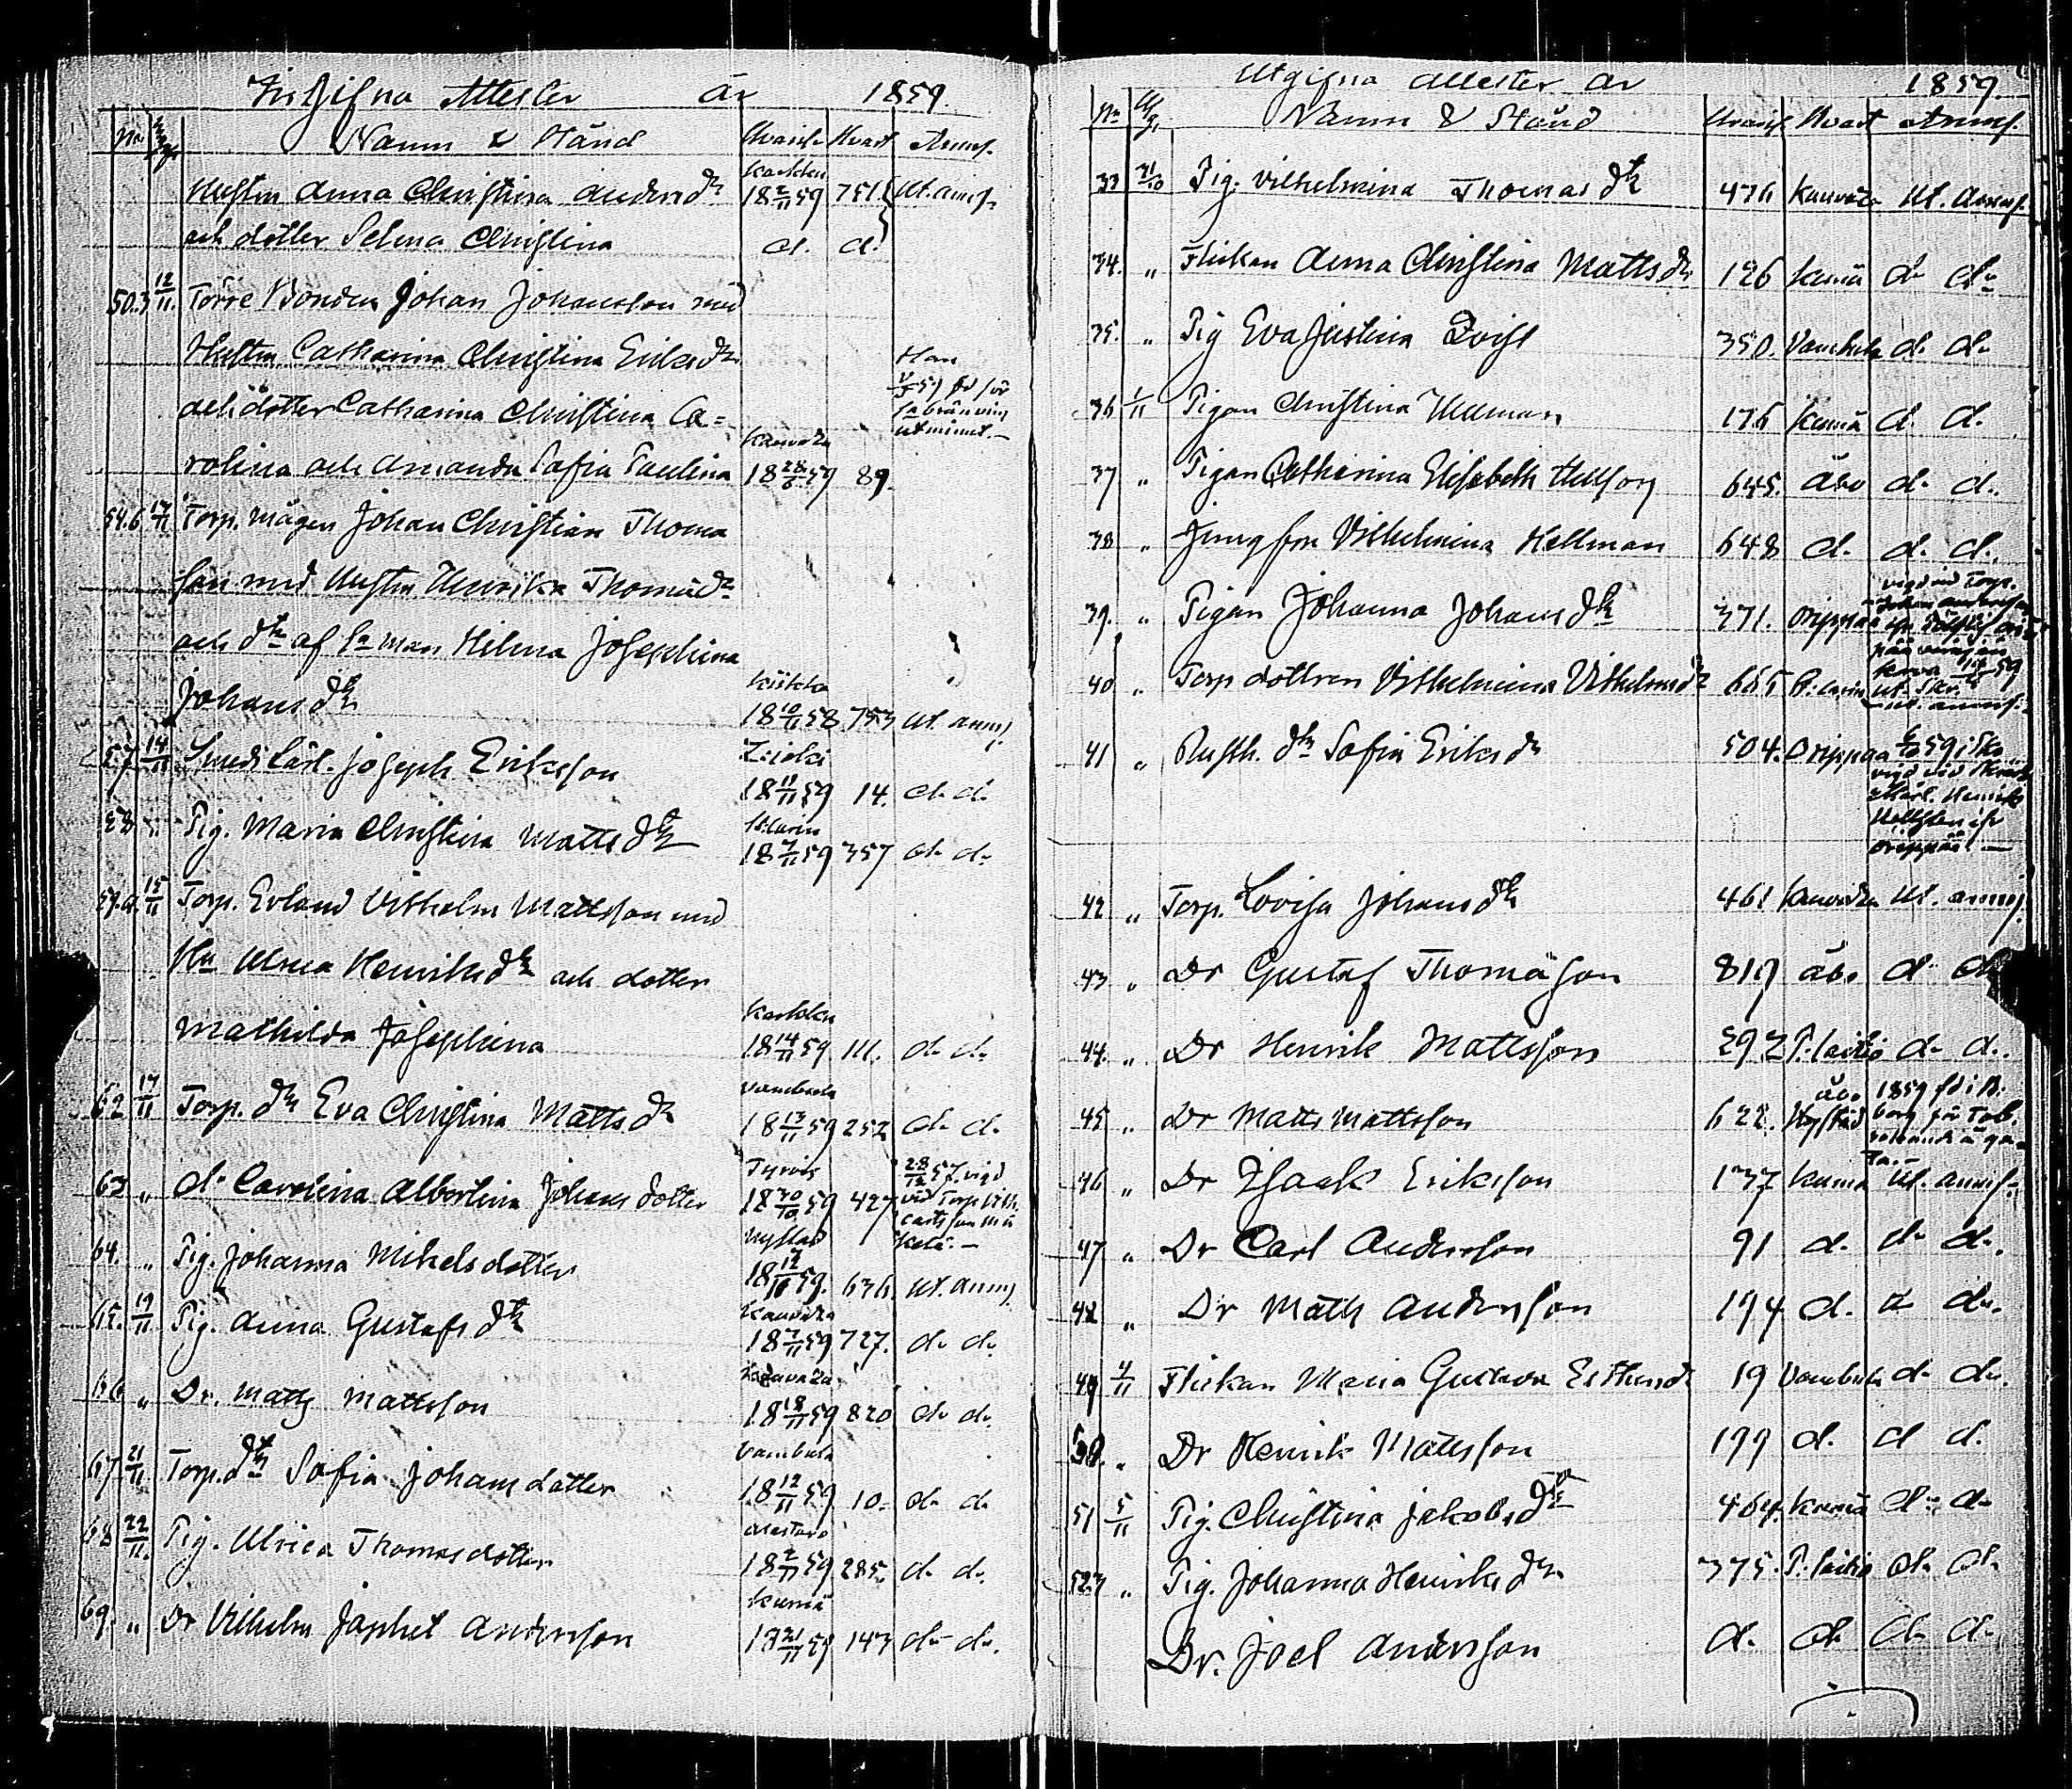 Ingifna Attester år 1859.
No Namn & Stånd Hvarifr. Hvart Anmf.
Hustrun Anna Christina Andersdr Karkku 18 2/11 59 751 Ut. anmf.
och dotter Selma Christina d. d.
50.3 12/11 Torre Bonden Johan Johansson med
Hustrun Catharina Christina Eriksdr
och dötter Catharina Christina Ca=
rolina och Amanda Sofia Paulina 18 59 89.
54.6 Torp. mågen Johan Christian Thoma
son med Hustrun Henrika Thomædr
och dtr af man Hilma Josephina
Johansdtr Kiikka 18 10/11 58 753 Ut. anmf.
57 14/11 Smeds Lärl. Joseph Eriksson 18 11/11 59 14. d. d.
58 " Pig. Maria Christina Mattsdtr 18 7/11 59 357 d. d.
59.61 15/11 Torp. Erland Vilhelm Mattsson med
Hu Ulrica Henriksdtr och dotter
Mathilda Josephina Karkku 18 14/11 59 111. d. d.
62 17/11 Torp. dtr Eva Christina Mattsdr Vambula 18 13/11 59 252 d. d.
63 " d. Carolina Albertina Johansdotter Tyrvis 18 30/10 59 427 28/12 57 vigd vid Torp. Vilh.
64. " Pig. Johanna Mikelsdotter Nystad 18 59. 636 Ut. anmf.
65. 19/11 Pig. Anna Gustafsdtr Kauvatsa 18 7/11 59 727. d. d.
66 " Dr. Matts Mattsson Kauvatsa 18 18/11 59 820 d. d.
67 21/11 Torp. dtr Sofia Johansdotter Vambula 18 12/11 59 10. d. d.
68 22/11 Pig. Ulrica Thomasdotter Alastaro 18 2/11 59 285. d. d.
69. " Dr Vilhelm Japhet Andersson Kumå 18 21/11 59 143 d. d.
Utgifna Attester år 1859.
No Namn & Stånd Hvarifr. Hvart Anmf.
33 31/10 Pig. Vilhelmina Thomasdtr 476 Kauvatsa Ut. Anmf.
34. " Flickan Anna Christina Mattsdr 126 Kumå d. d.
35. " Pig Eva Justina Qvist 350. Vambula d. d.
36 1/11 Pigan Christina Ullman 176 Kumå d. d.
37 " Pigan Catharina Elisabeth Hellfors 645. Åbo d. d.
38 " Jungfru Vilhelmina Hellman 648 d. d. d.
39. " Pigan Johanna Johansdtr 371. Oripää vigd vid Torp. Johan Andersson
40 " Torp dottren Vilhelmina Vilhelmsdr 665 Ut. anmf.
41 " Rusth. dtr Sofia Eriksdr 504. Oripää 59 vigd vid Henrik Hellsten ifr Oripää. —
42 " Torp. Lovisa Johansdtr 461 Kauvatsa Ut. anmf.
43 " Dr Gustaf Thomæson 819 Åbo d. d.
44. " Dr Henrik Mattsson 292 P:laitio d. d.
45 " Dr Matts Mattsson 622. Åbo Nystad 1859
46 " Dr Isaak Eriksson 137 Kumå Ut. anmf.
47 " Dr Carl Andersson 91 d. d. d.
48 " Dr Matts Andersson 194 d. d. d.
49 4/11 Flickan Maria Gustava 19 Vambula d. d.
50. " Dr Henrik Mattsson 199 d. d. d.
51 5/11 Pig. Christina Jakobsdtr 464. Kumå d. d.
52.3 " Pig. Johanna Henriksdtr 375. P:laitio d. d.
Dr. Joel Andersson d. d. d. d.